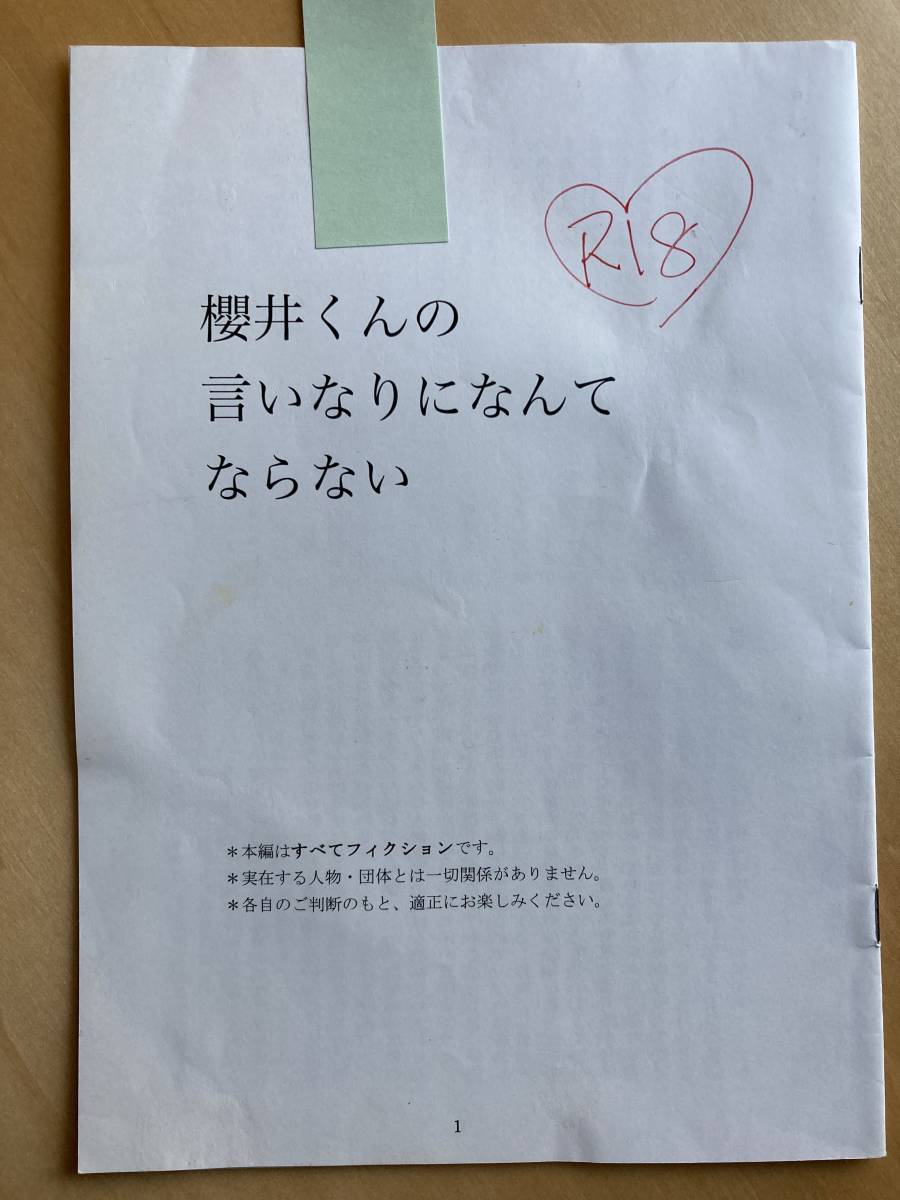 R18
櫻井くんの
言いなりになんて
ならない
＊本編はすべてフィクションです。
＊実在する人物・団体とは一切関係がありません。
＊各自のご判断のもと、適正にお楽しみください。
1